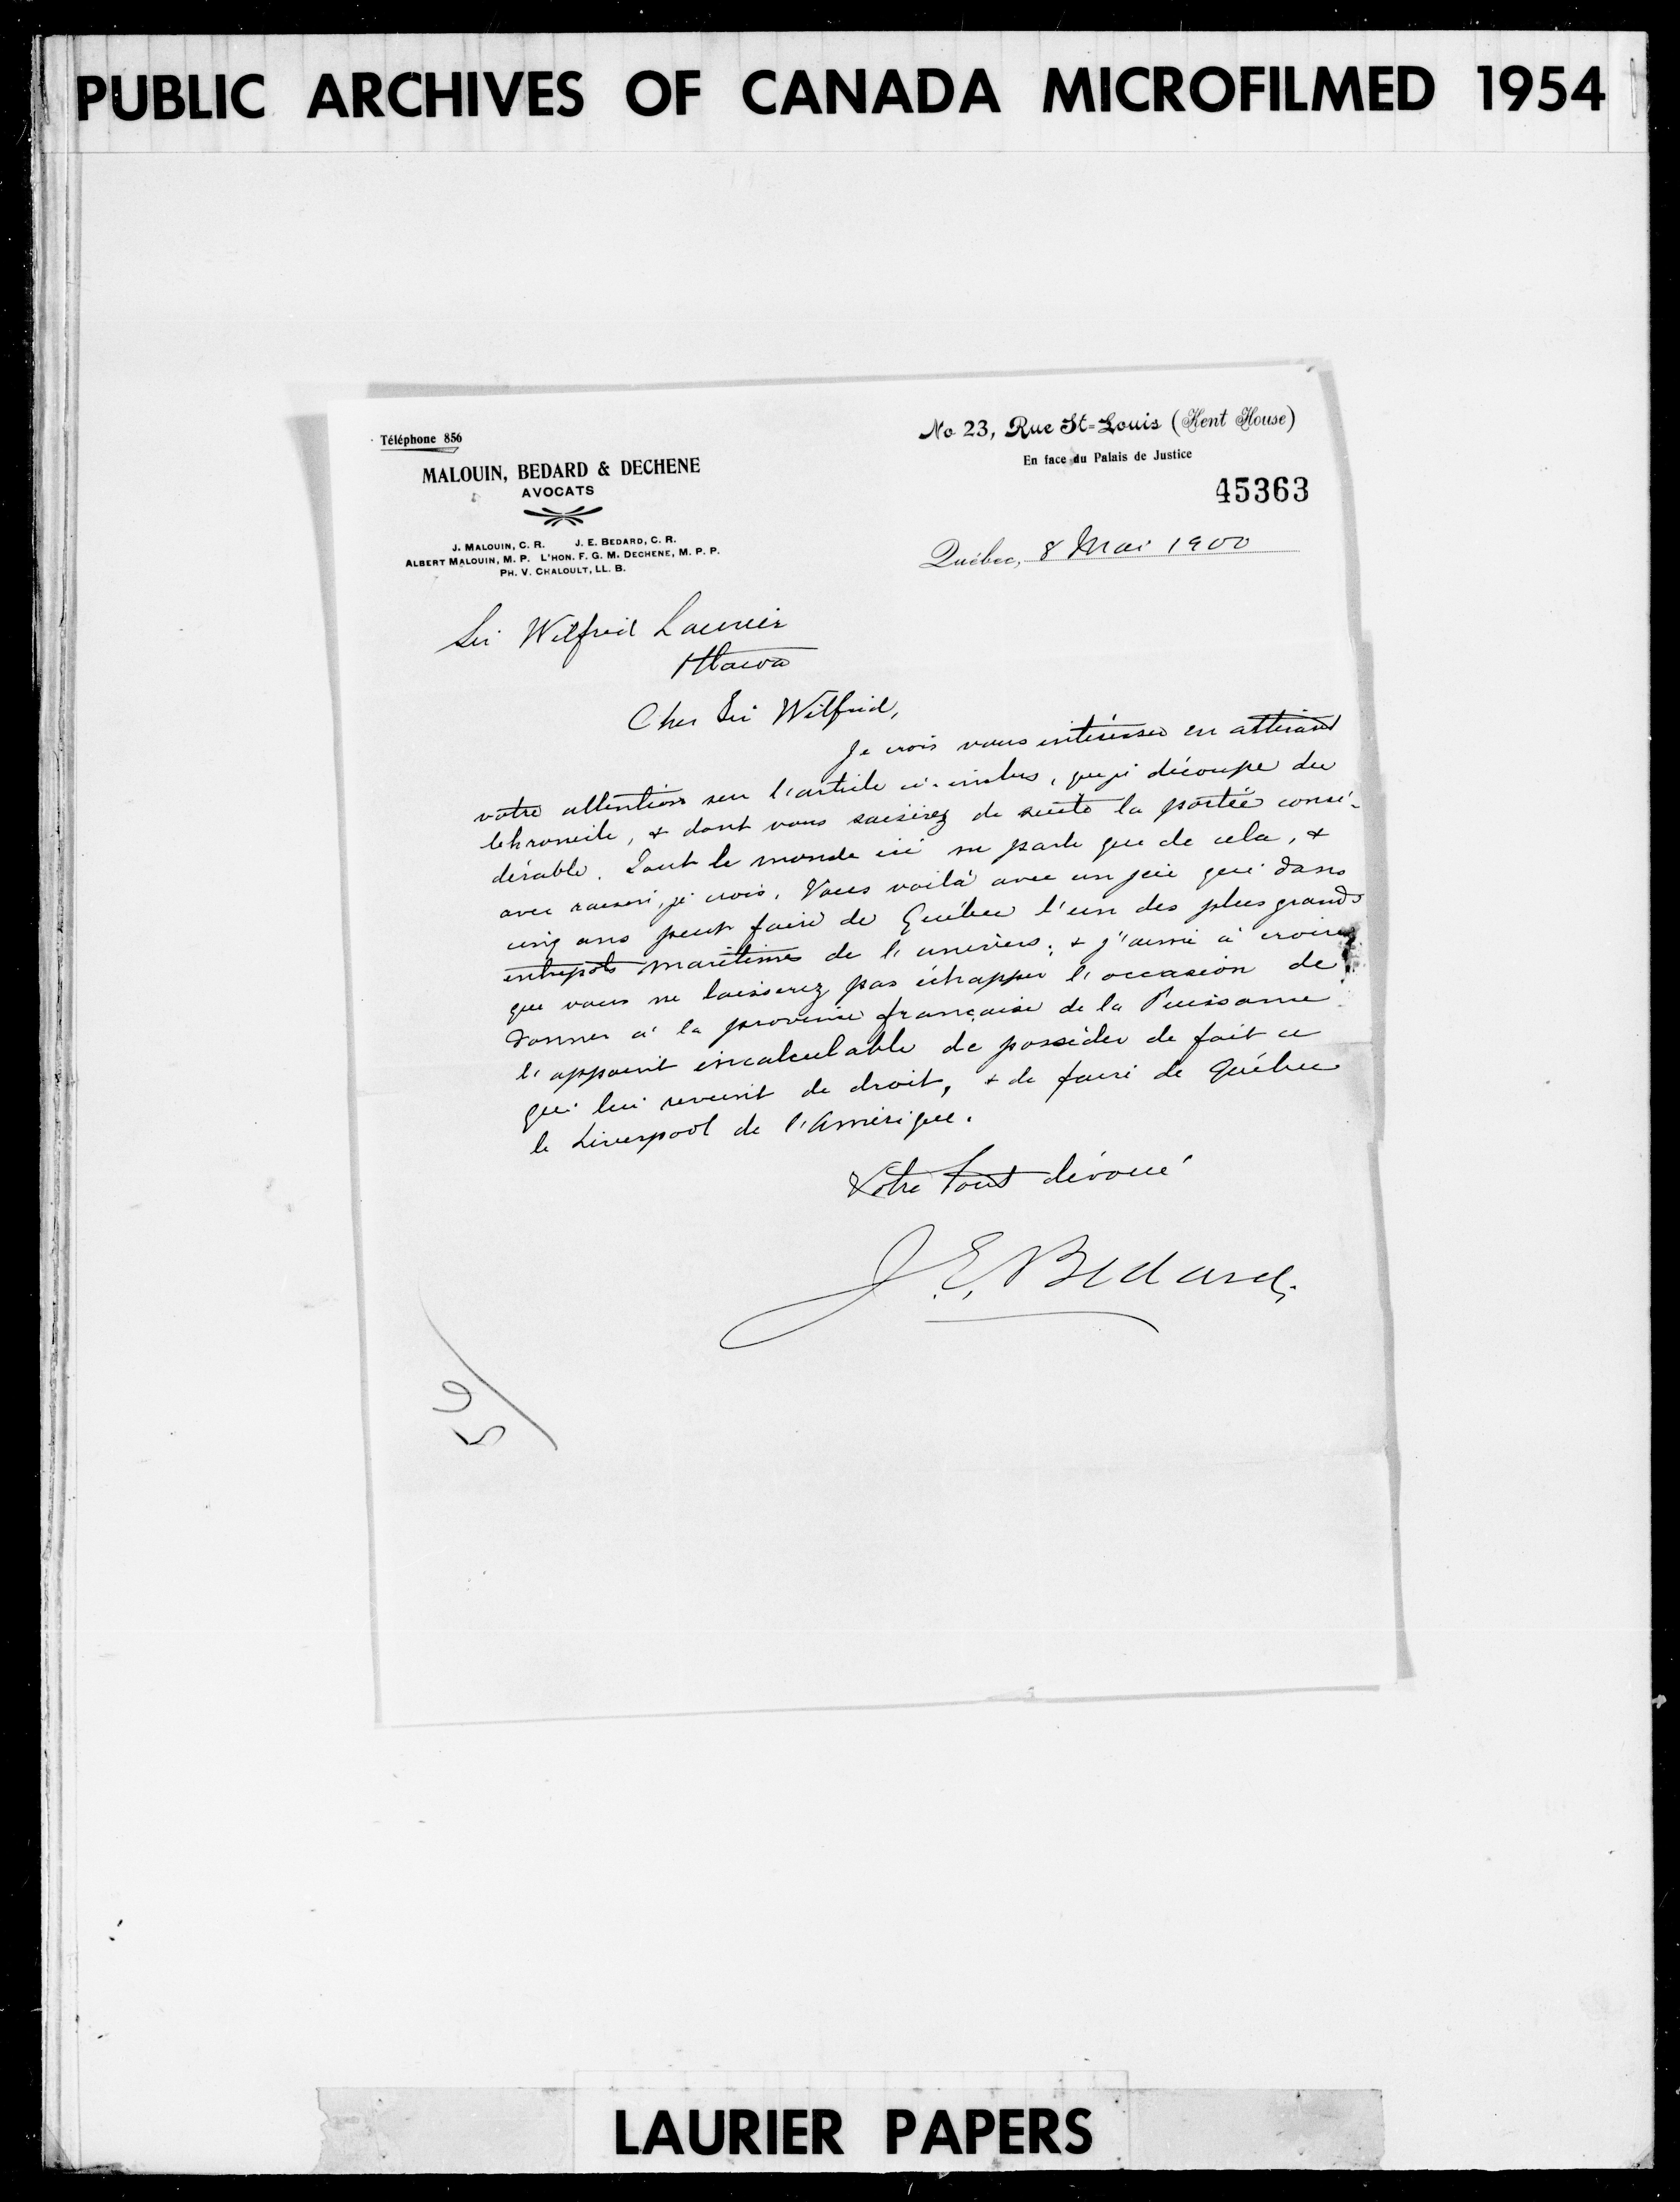 PUBLIC ARCHIVES OF CANADA MICROFILMED 1954
Téléphone 856
MALOUIN, BEDARD & DECHENE
AVOCATS
J. MALOUIN, C. R. J. E. BEDARD, C. R.
ALBERT MALOUIN, M. P. L'HON. F. G. M. DECHENE, M. P. P.
PH. V. CHALOULT, LL. B.
No 23, Rue St-Louis (Kent House)
En face du Palais de Justice
45363
Québec, 8 Mai 1900
Sir Wilfrid Laurier
Ottawa
Cher Sir Wilfrid,
Je crois vous intéresser en attirant
votre attention sur l'article ci-inclus, que je découpe du
Chronicle, & dont vous saisirez de suite la portée consi-
dérable. Tout le monde ici ne parle que de cela, &
avec raison, je crois. Vous voilà avec un jeu qui dans
cinq ans peut faire de Québec l'un des plus grands
entrepots maritimes de l'univers; & j'aime à croire
que vous ne laisserez pas échapper l'occasion de
donner à la province française de la Puissance
l'appoint incalculable de posséder de fait ce
qui lui revient de droit, & de faire de Québec
le Liverpool de l'Amérique.
Votre tout dévoué
J. E. Bedard
56/
LAURIER PAPERS